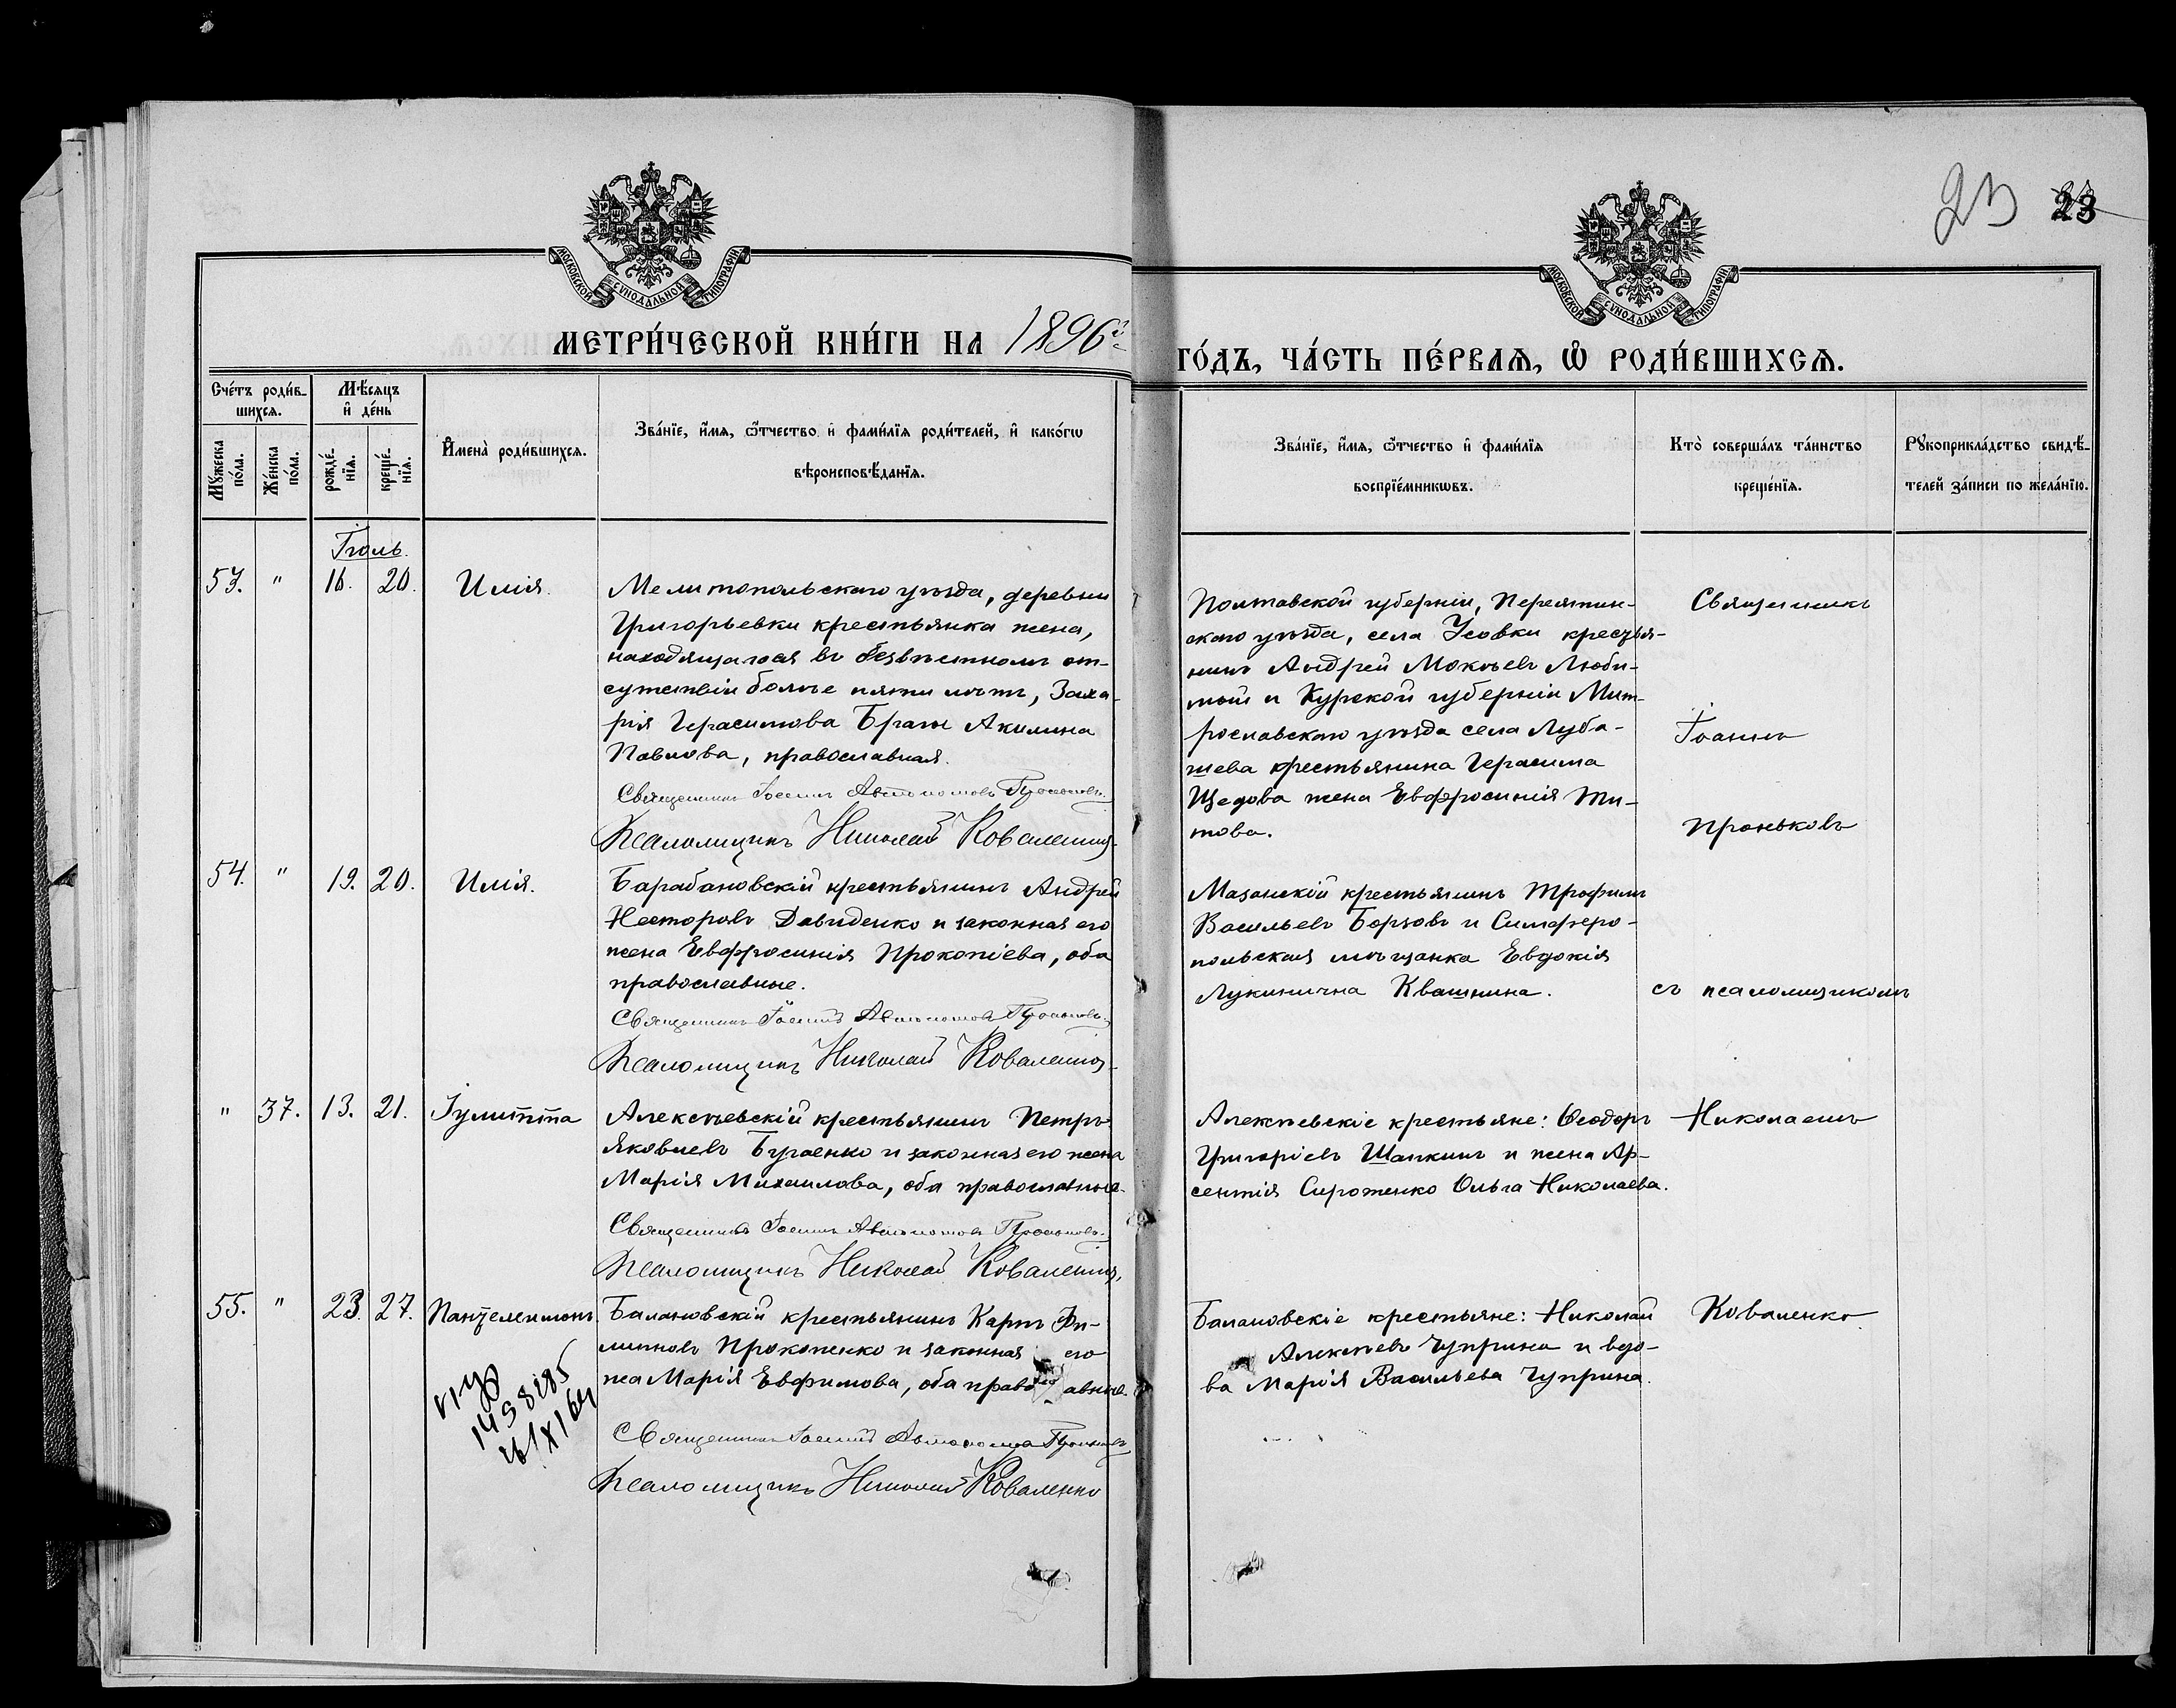 23 23
МОСКОВСКОЙ СУНОДАЛЬНОЙ ТИПОГРАФІИ
МОСКОВСКОЙ СУНОДАЛЬНОЙ ТИПОГРАФІИ
МЕТРИ́ЧЕСКОЙ КНИ́ГИ НА 1896й
ГО́ДЪ, ЧА́СТЬ ПЕ́РВАѦ, Ѡ РОДИ́ВШИХСѦ.
Сче́тъ роди́в-
шихсѧ.
Мꙋжеска по́ла.
Же́нска по́ла.
Мѣ́сяцъ
и҆ де́нь
рожде́-
нїѧ.
креще́-
нїѧ.
И҆мена̀ роди́вшихсѧ.
Зва́нїе, и҆́мѧ, ѻ҆́тчество и҆ фами́лїѧ роди́телей, и҆ како́гѡ
вѣроисповѣ́данїѧ.
Зва́нїе, и҆́мѧ, ѻ҆́тчество и҆ фами́лїѧ
воспрїе́мникѡвъ.
Кто̀ соверша́лъ та́инство
креще́нїѧ.
Рꙋкоприкла́дство свидѣ́-
телей за́писи по жела́нїю.
Іюль.
53. " 16. 20. Илія.
Мелитопольскаго уѣзда, деревни
Григорьевки крестьянка жена,
находящагося въ безвѣстномъ от-
сутствіи болѣе пяти лѣтъ, Заха-
рія Герасимова Браги Акилина
Павлова, православная.
Священникъ Іоаннъ Автономовъ Проньковъ.
Псаломщикъ Николай Коваленко.
Полтавской губерніи, Перятин-
скаго уѣзда, села Усовки крестья-
нинъ Андрей Мокіевъ Люби-
мый и Курской губерніи Мит-
рославскаго уѣзда села Луба-
шева крестьянина Герасима
Щедова жена Евфросинія Ти-
това.
Священникъ
Іоаннъ
Проньковъ
54. " 19. 20. Илія.
Барабановскій крестьянинъ Андрей
Несторовъ Давиденко и законная его
жена Евфросинія Прокопіева, оба
православные.
Священникъ Іоаннъ Автономовъ Проньковъ.
Псаломщикъ Николай Коваленко.
Мазанскій крестьянинъ Трофимъ
Васильевъ Борзовъ и Симферо-
польская мѣщанка Евдокія
Лукинична Квашнина.
съ псаломщикомъ
" 37. 13. 21. Іулитта
Алексѣевскій крестьянинъ Петръ
Яковлевъ Бугаенко и законная его жена
Марія Михаилова, оба православные.
Священникъ Іоаннъ Автономовъ Проньковъ.
Псаломщикъ Николай Коваленко.
Алексѣевскіе крестьяне: Ѳеодоръ
Григоріевъ Шапкинъ и жена Ар-
сентія Сиротенко Ольга Николаева.
Николаемъ
55. " 23. 27. Пантелеимонъ.
Балановскій крестьянинъ Карпъ Фи-
липповъ Прокопенко и законная его
жена Марія Евфимова, оба православные.
Священникъ Іоаннъ Автономовъ Проньковъ
Псаломщикъ Николай Коваленко
Балановскіе крестьяне: Николай
Алексѣевъ Чуприна и вдо-
ва Марія Васильева Чуприна.
Коваленко.
1498185